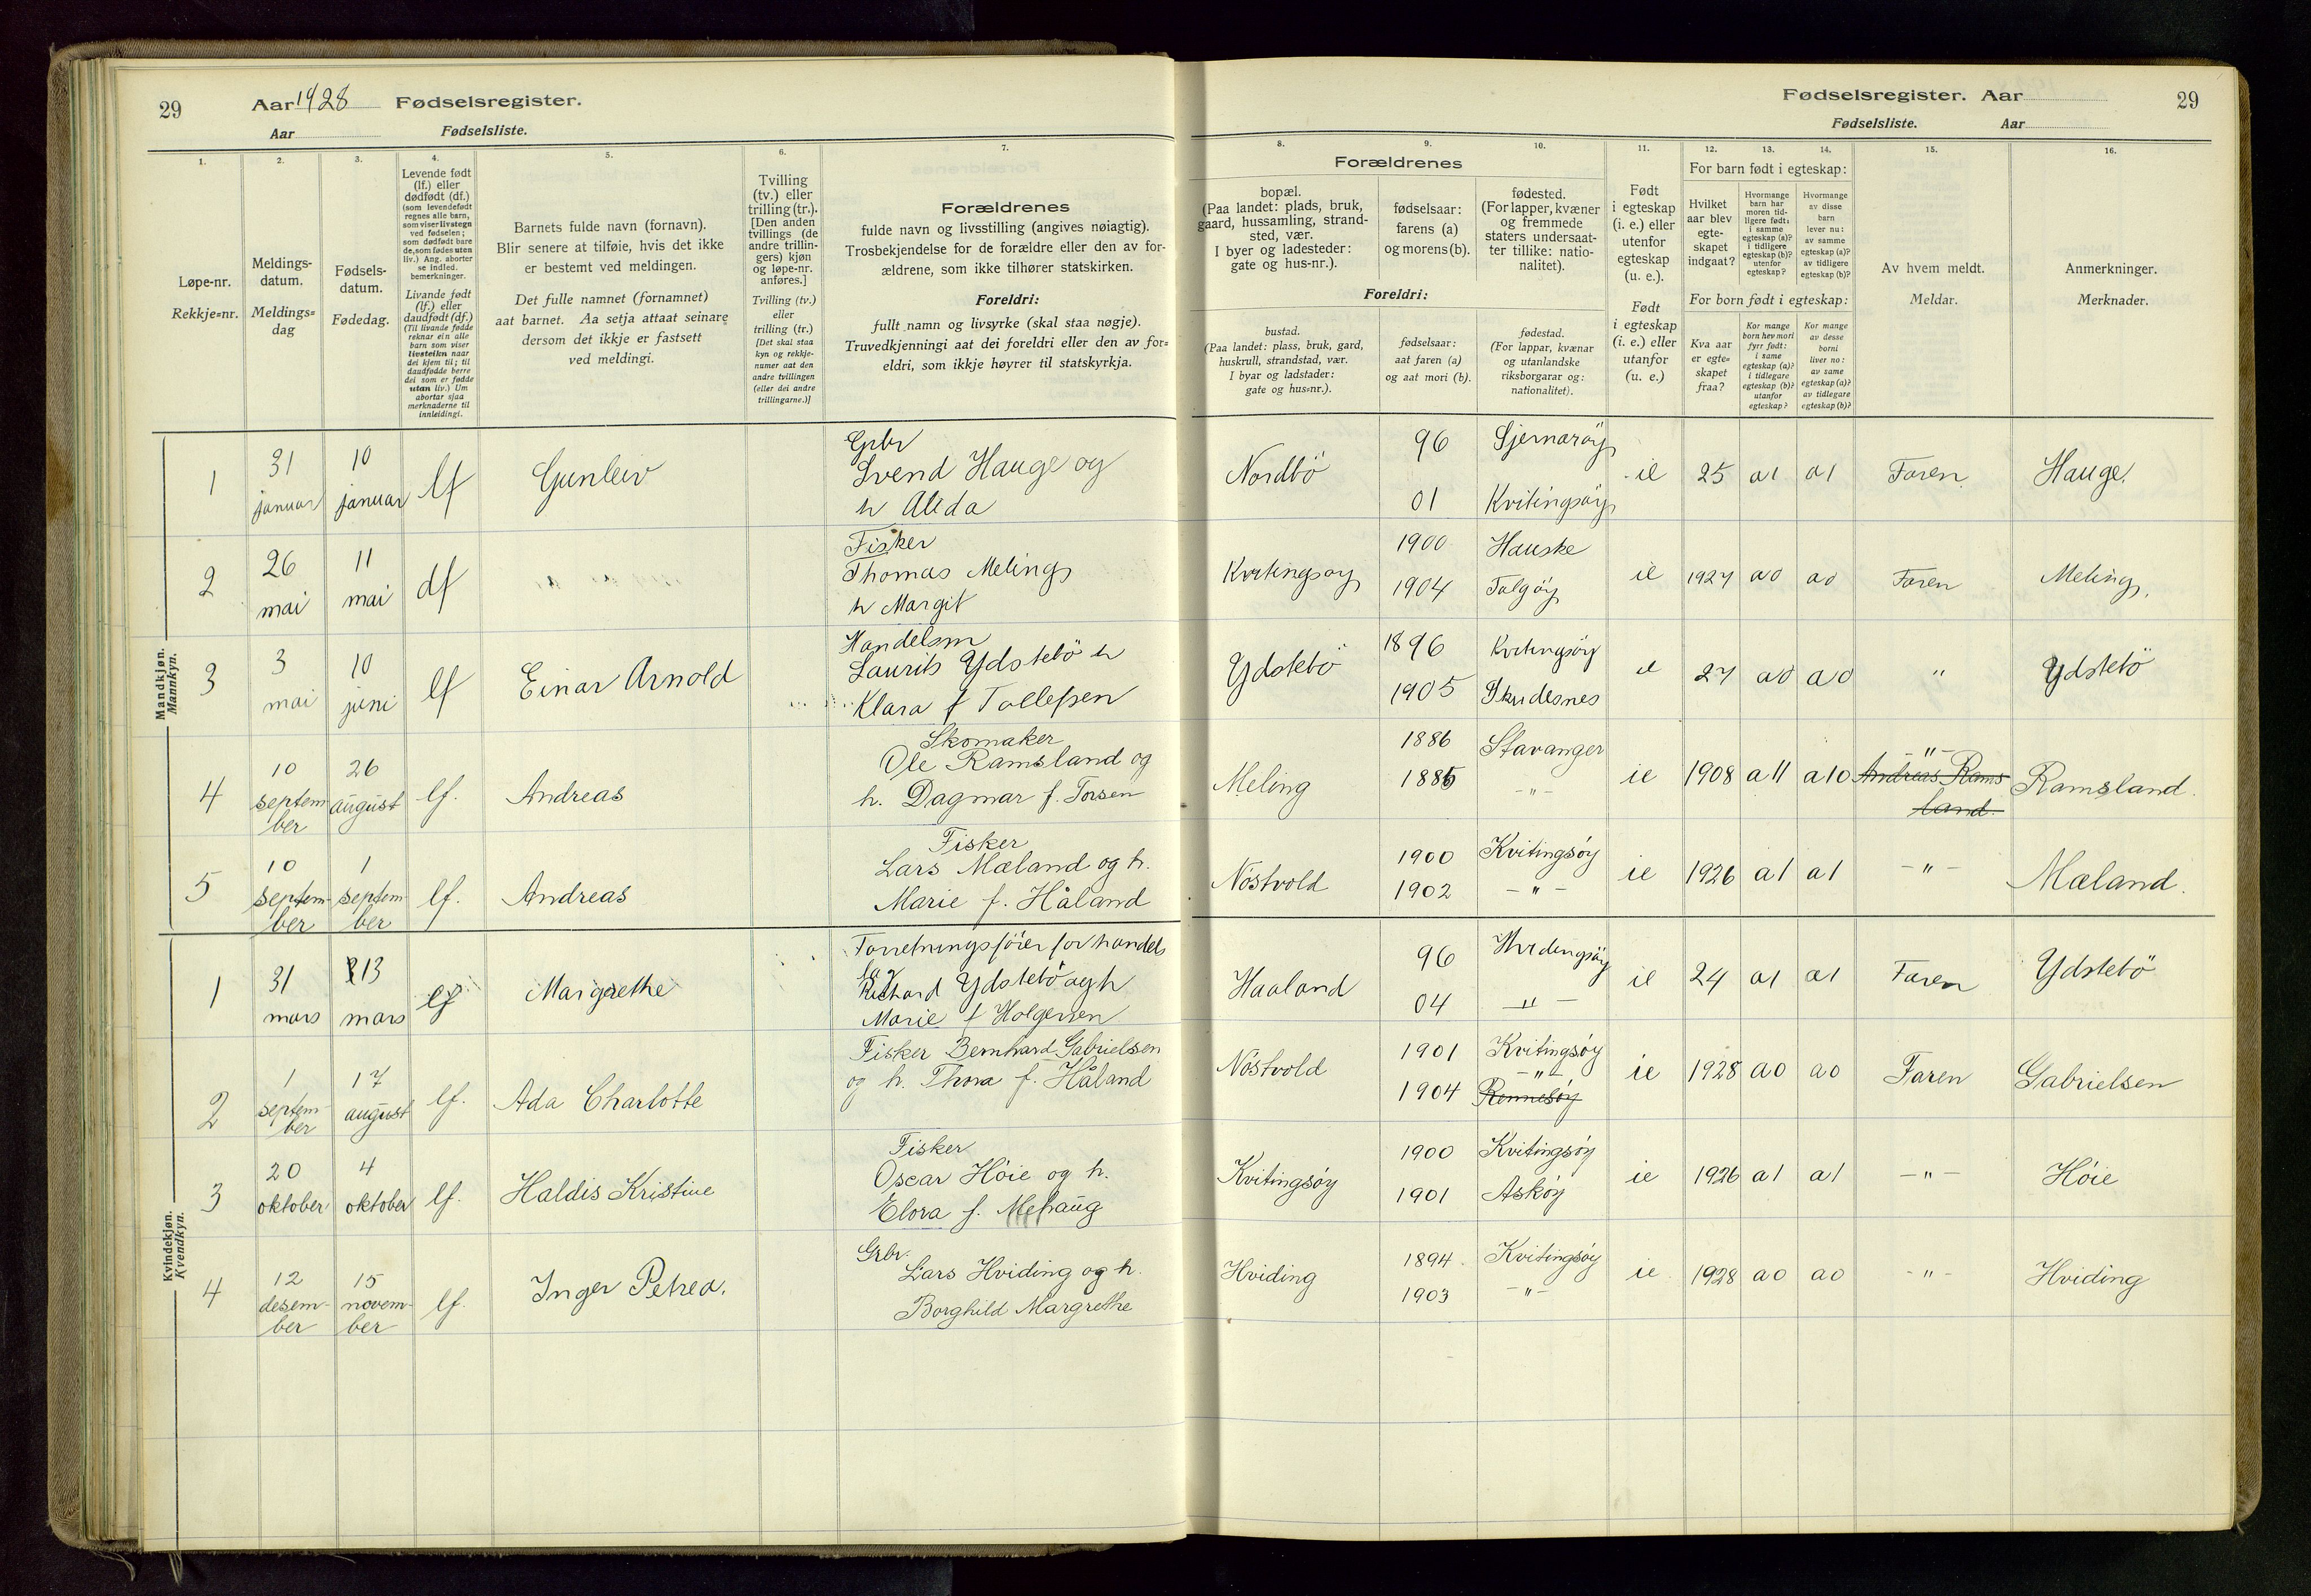 29 Aar 1928 Fødselsregister.
Aar Fødselsliste.
Fødselsregister. Aar 29
Fødselsliste. Aar
1. 2. 3. 4. 5. 6. 7.
Løpe-nr.
Rekkje=nr.
Meldings-
datum.
Meldings=
dag
Fødsels-
datum.
Fødedag.
Levende født
(lf.) eller
dødfødt (df.)
(som levendefødt
regnes alle barn,
som viser livstegn
ved fødselen;
som dødfødt bare
de, som fødes uten
liv.) Ang. aborter
se indled.
bemerkninger.
Livande født
(lf.) eller
daudfødt (df.)
(Til livande fødde
reknar ein alle
barn som viser
livsteikn naar
dei kjem til; til
daudfødde berre
dei som er fødde
utan liv.) Um
abortar sjaa
merknaderne til
innleidingi.
Barnets fulde navn (fornavn).
Blir senere at tilføie, hvis det ikke
er bestemt ved meldingen.
Det fulle namnet (fornamnet)
aat barnet. Aa setja attaat seinare
dersom det ikkje er fastsett
ved meldingi.
Tvilling
(tv.) eller
trilling (tr.).
[Den anden
tvillings (de
andre trillin-
gers) kjøn
og løpe-nr.
anføres.]
Tvilling (tv.)
eller
trilling (tr.)
[Det skal staa
kyn og rekkje-
numer aat den
andre tvillingen
(eller dei andre
trillingarne.)]
Forældrenes
fulde navn og livsstilling (angives nøiagtig).
Trosbekjendelse for de forældre eller den av for-
ældrene, som ikke tilhører statskirken.
Foreldri:
fullt namn og livsyrke (skal staa nøgje).
Truvedkjenningi aat dei foreldri eller den av for=
eldri, som ikkje høyrer til statskyrkja.
8. 9. 10. 11. 12. 13. 14. 15. 16.
Forældrenes
bopæl.
(Paa landet: plads, bruk,
gaard, hussamling, strand-
sted, vær.
I byer og ladesteder:
gate og hus-nr.).
fødselsaar:
farens (a)
og morens (b).
fødested.
(For lapper, kvæner
og fremmede
staters undersaat-
ter tillike: natio-
nalitet).
Foreldri:
bustad.
(Paa landet: plass, bruk, gard,
huskrull, strandstad, vær.
I byar og ladstader:
gate og hus=nr.).
fødselsaar:
aat faren (a)
og aat mori (b).
fødestad.
(For lappar, kvænar
og utanlandske
riksborgarar og:
nationalitet).
Født
i egteskap
(i. e.) eller
utenfor
egteskap
(u. e.).
Født
i egteskap
(i. e.) eller
utanfor
(u. e.)
For barn født i egteskap:
Hvilket
aar blev
egte-
skapet
indgaat?
Hvormange
barn har
moren tid-
ligere født:
i samme
egteskap (a)?
i tidligere
egteskap (b)?
utenfor
egteskap?
Hvormange
av disse
barn
lever nu:
av samme
egteskap (a)?
av tidligere
egteskap (b)?
For born født i egteskap:
Kva aar
er egte=
skapet
fraa?
Kor mange
born hev mori
fyrr født:
i same
egteskap (a)?
i tidlegare
egteskap (b)?
utanfor
egteskap?
Kor mange
av desse
borni
liver no:
av same
egteskap (a)?
av tidlegare
egteskap (b)?
Av hvem meldt.
Meldar.
Anmerkninger.
Merknader.
Mandkjøn.
Mannkyn.
1 31 januar 10 januar lf Gunleiv
Grbr
Svend Hauge og
h Alida
Nordbö 96 Sjernaröy
01 Kvitingsöy
ie 25 a1 a1 Faren Hauge.
2 26 mai 11 mai df
Fisker
Thomas Meling
h Margit
Kvitingsöy 1900 Hauske
1904 Talgöy
ie 1927 a0 a0 Faren Meling.
3 3 mai 10 juni lf Einar Arnold
Handelsm
Laurits Ydstebö h
Klara f Tollefsen
Ydstebö 1896 Kvitingsöy
1905 Skudesnes
ie 27 a0 a0 " Ydstebö
4 10 septem-
ber 26 august lf. Andreas
Skomaker
Ole Ramsland og
h. Dagmar f. Torsen
Meling 1886 Stavanger
1885 -"-
ie 1908 a11 a10 -"-
Andreas Rams
land.
Ramsland.
5 10 septem-
ber 1 septem-
ber lf. Andreas
Fisker
Lars Mæland og h.
Marie f. Håland
Nöstvold 1900 Kvitingsöy
1902 -"-
ie 1926 a1 a1 -"- Mæland.
Kvindekjøn.
Kvendkyn.
1 31 mars 13 mars lf Margrethe
Forretningsförer for handels
lag
Richard Ydstebö og h
Marie f Holgersen
Haaland 96 Hvidingsöy
04 -"-
ie 24 a1 a1 Faren Ydstebö
2 1 septem-
ber 17 august lf. Ada Charlotte
Fisker Bernhard Gabrielsen
og h. Thora f. Håland
Nöstvold 1901 Kvitingsöy
-"-
1904 Rennesöy
ie 1928 a0 a0 Faren Gabrielsen
3 20 oktober 4 oktober lf. Haldis Kristine
Fisker
Oscar Höie og h.
Elora f. Mehaug
Kvitingsöy 1900 Kvitingsöy
1901 Asköy
ie 1926 a1 a1 -"- Höie
4 12 desem-
ber 15 novem-
ber lf. Inger Petrea.
Grbr.
Lars Hviding og h.
Borghild Margrethe
Hviding 1894 Kvitingsöy
1903 -"-
ie 1928 a0 a0 -"- Hviding